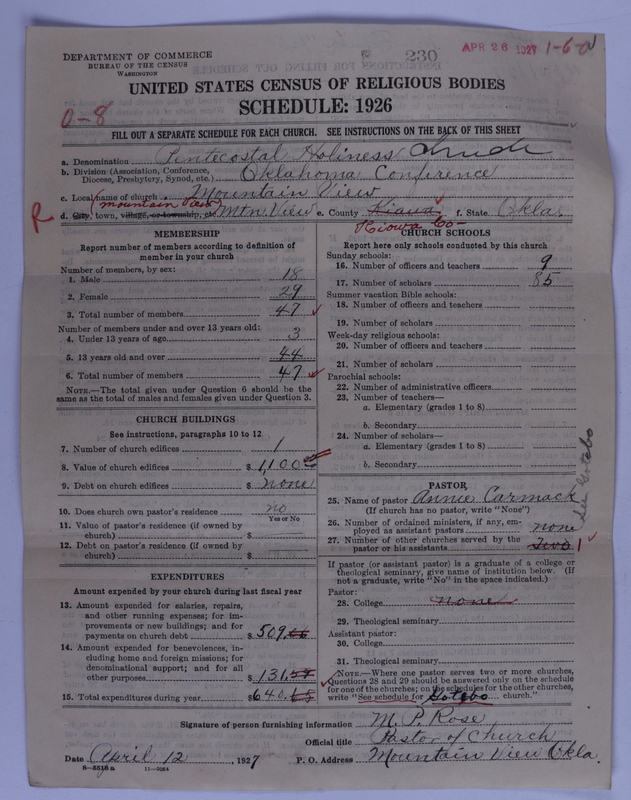 DEPARTMENT OF COMMERCE
BUREAU OF THE CENSUS
WASHINGTON
230
APR 26 1927
1-6-
UNITED STATES CENSUS OF RELIGIOUS BODIES
SCHEDULE: 1926
0-8
FILL OUT A SEPARATE SCHEDULE FOR EACH CHURCH. SEE INSTRUCTIONS ON THE BACK OF THIS SHEET
a. Denomination Pentecostal Holiness
b. Division (Association, Conference, Diocese, Presbytery, Synod, etc.) Oklahoma Conference
c. Local name of church Mountain View
(Mountain View)
R
d. City, town, village, or township, etc Mtn. View e. County Kiawa f. State Okla.
Kiowa Co-
MEMBERSHIP
Report number of members according to definition of
member in your church
Number of members, by sex:
1. Male 18
2. Female 29
3. Total number of members 47
Number of members under and over 13 years old:
4. Under 13 years of age 3
5. 13 years old and over 44
6. Total number of members 47
NOTE.—The total given under Question 6 should be
same as the total of males and females given under Question 3.
CHURCH BUILDINGS
See instructions, paragraphs 10 to 12
7. Number of church edifices 1
8. Value of church edifices $ 1,100
9. Debt on church edifices $ none
10. Does church own pastor's residence no
Yes or No
11. Value of pastor's residence (if owned by
church) $
12. Debt on pastor's residence (if owned by
church) $
EXPENDITURES
Amount expended by your church during last fiscal year
13. Amount expended for salaries, repairs,
and other running expenses; for im-
provements or new buildings; and for
payments on church debt $ 509.
14. Amount expended for benevolences, in-
cluding home and foreign missions; for
denominational support; and for all
other purposes $ 131.
15. Total expenditures during year $ 640.
CHURCH SCHOOLS
Report here only schools conducted by this church
Sunday schools:
16. Number of officers and teachers 9
17. Number of scholars 85
Summer vacation Bible schools:
18. Number of officers and teachers
19. Number of scholars
Week-day religious schools:
20. Number of officers and teachers
21. Number of scholars
Parochial schools:
22. Number of administrative officers
23. Number of teachers—
a. Elementary (grades 1 to 8)
b. Secondary
24. Number of scholars—
a. Elementary (grades 1 to 8)
b. Secondary
See Gotebo
PASTOR
25. Name of pastor Annie Carmack
(If church has no pastor, write "None")
26. Number of ordained ministers, if any, em-
ployed as assistant pastors none
27. Number of other churches served by the
pastor or his assistants Two 1
If pastor (or assistant pastor) is a graduate of a college or
theological seminary, give name of institution below. (If
not a graduate, write "No" in the space indicated.)
Pastor:
28. College none
29. Theological seminary
Assistant pastor:
30. College
31. Theological seminary
NOTE.—Where one pastor serves two or more churches,
Questions 28 and 29 should be answered only on the schedule
for one of the churches; on the schedules for the other churches,
write "See schedule for Gotebo church."
Signature of person furnishing information M. P. Rose
Official title Pastor of Church
Date April 12, 1927 P. O. Address Mountain View Okla.
8—5518a 11—9084